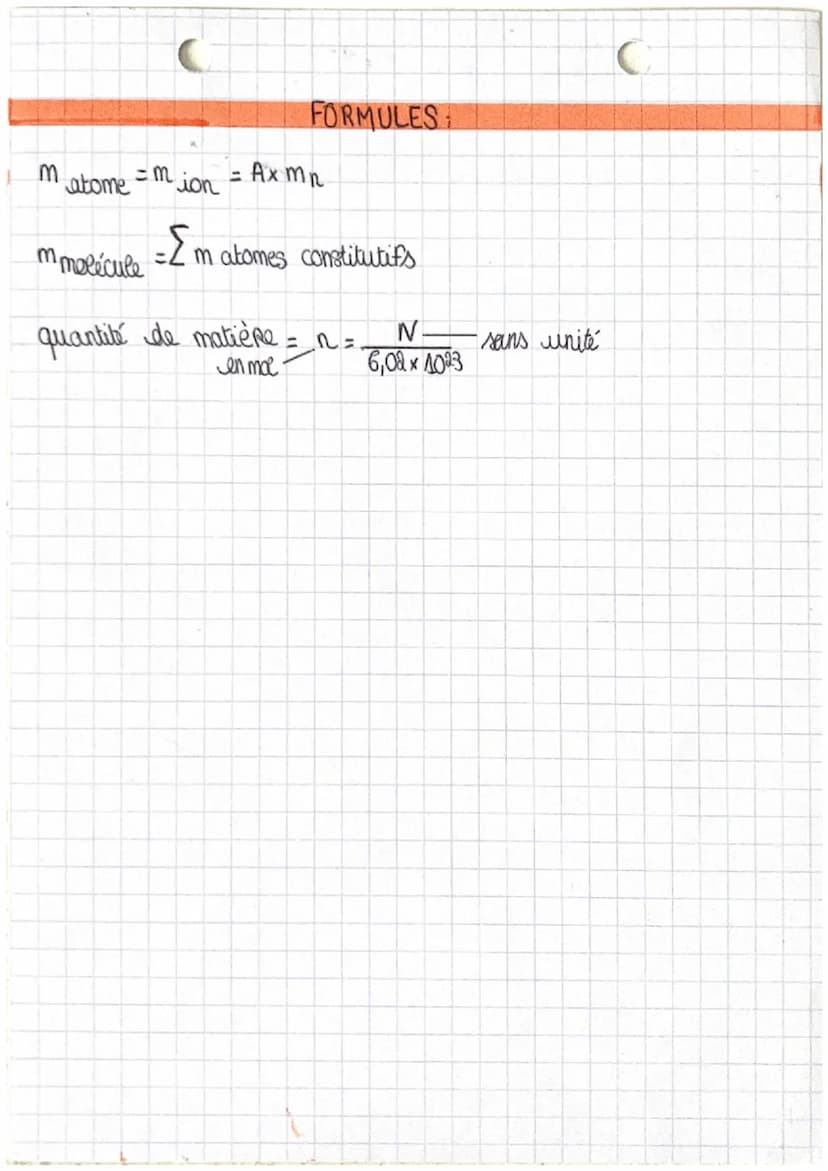 FORMULES :
m atome = m ion = A x mn
m molécule = ∑ m atomes constitutifs
quantité de matière = n = N / 6,02 x 10²³ sans unité
en mol